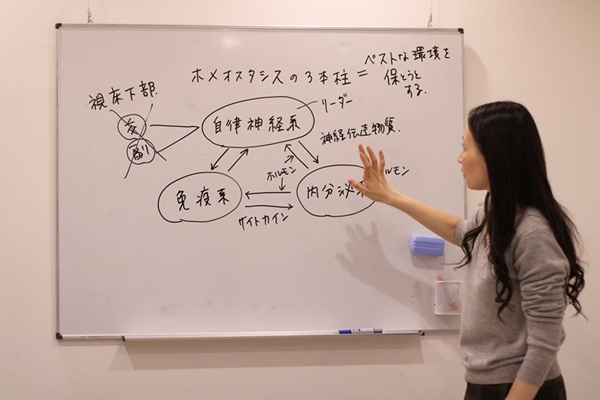 ホメオスタシスの3本柱 = ベストな環境を
保とうと
する。
視床下部
リーダー
自律神経系
交
神経伝達物質
ホルモン
ルモン
免疫系
内分泌
サイトカイン